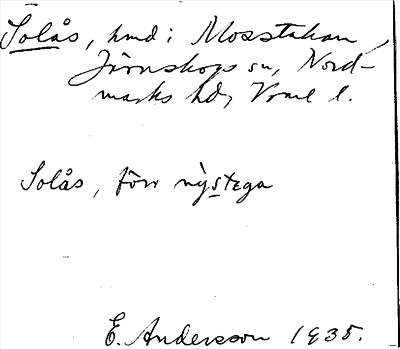 Solås, hmd i Mosstakan,
Järnskogs sn, Nord-
marks hd, Vrml l.
Solås, förr nystega
E. Andersson 1935.